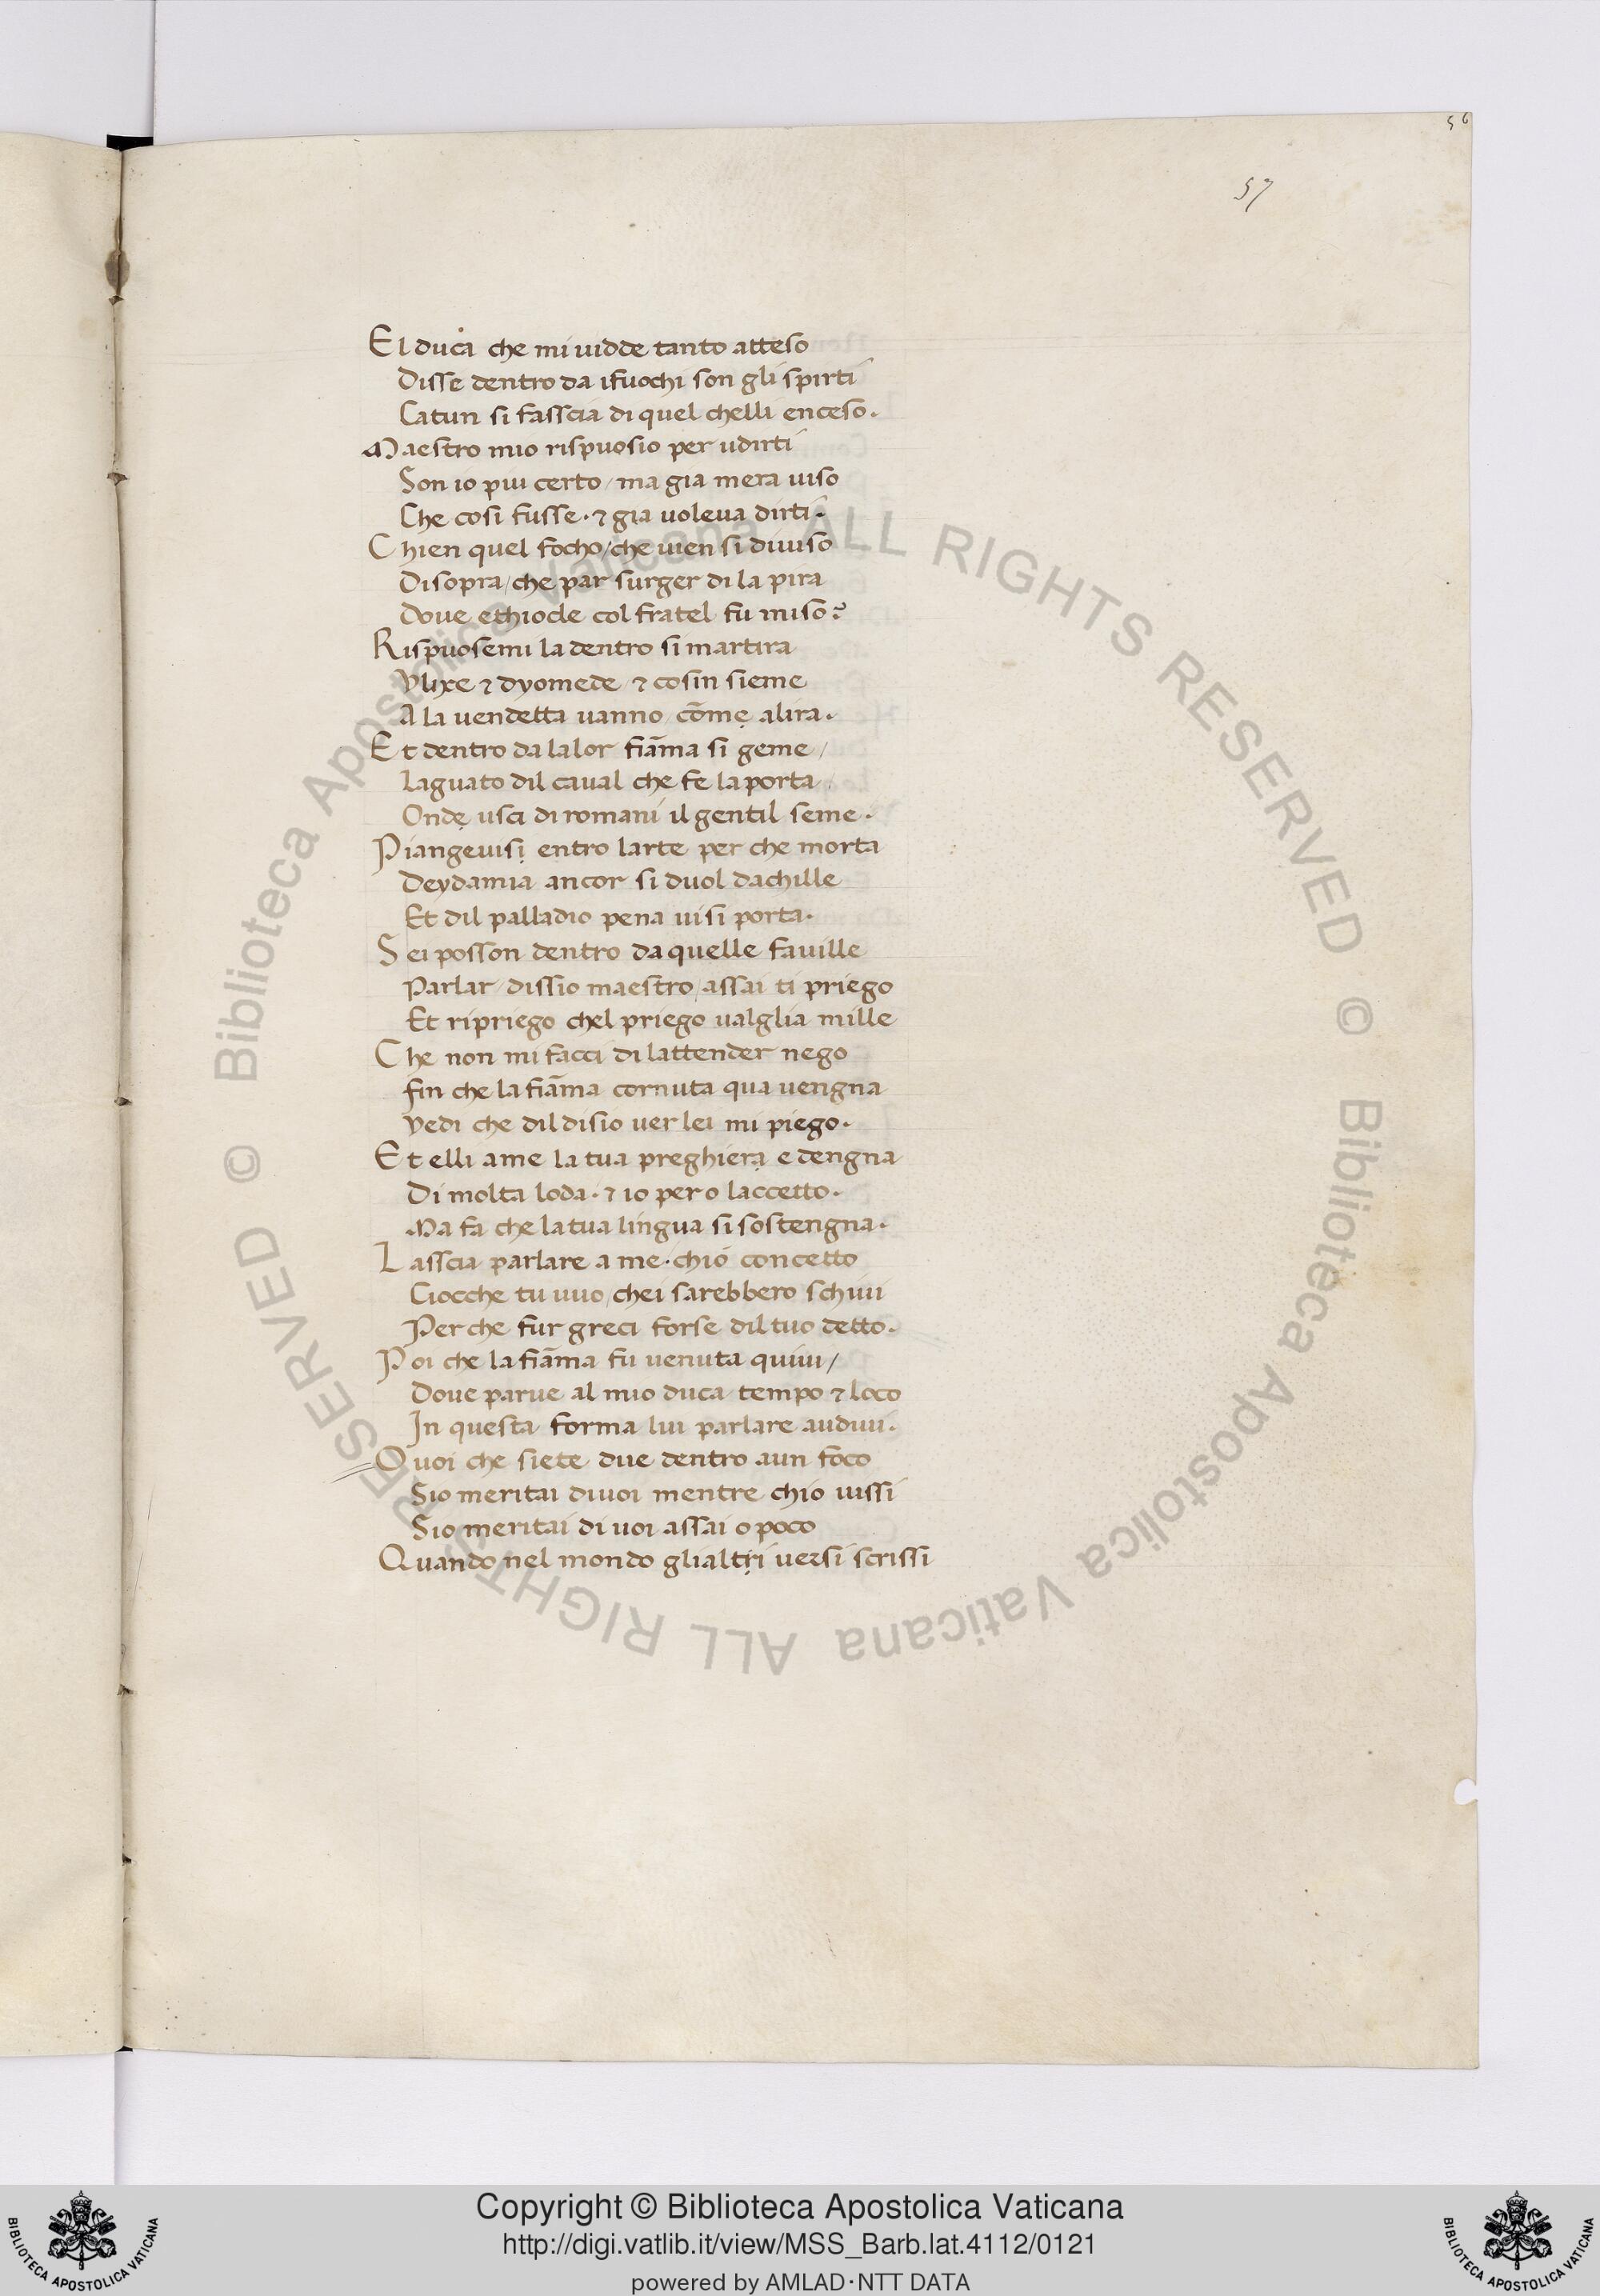 56
57
El duca che mi vidde tanto atteso
Disse dentro da ifuochi son gli spirti
Catun si fasscia di quel chelli enceso.
Maestro mio rispuosio per udirti
Son io piu certo / ma gia mera viso
Che cosi fusse . ⁊ gia voleva dirti .
Chien quel focho / che vien si diviso
Disopra / che par surger di la pira
Dove ethiocle col fratel fu miso ?
Rispuosemi la dentro si martira
Ulixe ⁊ dyomede / ⁊ cosin sieme
A la vendetta vanno com̄ẹ alira .
Et dentro da lalor fiām̄a si geme /
Laguato dil caval che fe la porta /
Ondẹ usci di romani il gentil seme .
Piangevisị entro larte per che morta
Deydamia ancor si duol dachille
Et dil palladio pena vi si porta .
Sei posson dentro da quelle faville
Parlar / dissio maestro / assai ti priego
Et ripriego chel priego valglia mille
Che non mi facci di lattender nego
fin che la fiāma cornuta qua vengna
Vedi che dil disio ver lei mi piego .
Et elli a me la tua preghierạ e dengna
Di molta loda . ⁊ io pero laccetto .
Ma fa che la tua lingua si sostengna .
Lasscia parlare a me . chio concetto
Ciocche tu vuo / chei sarebbero schivi
Per che fur greci forse dil tuo detto .
Poi che la fiāma fu venuta quivi /
Dove parve al mio duca tempo ⁊ loco
In questa forma lui parlare audivi .
O voi che siete due dentro aun foco
Sio meritai divoi mentre chio vissi
Sio meritai di voi assai o poco
Quando nel mondo glialtṛi versi scrissi
© Biblioteca Apostolica Vaticana ALL RIGHTS RESERVED © Biblioteca Apostolica Vaticana ALL RIGHTS RESERVED
Copyright © Biblioteca Apostolica Vaticana
http://digi.vatlib.it/view/MSS_Barb.lat.4112/0121
powered by AMLAD·NTT DATA
BIBLIOTECA APOSTOLICA VATICANA
BIBLIOTECA APOSTOLICA VATICANA